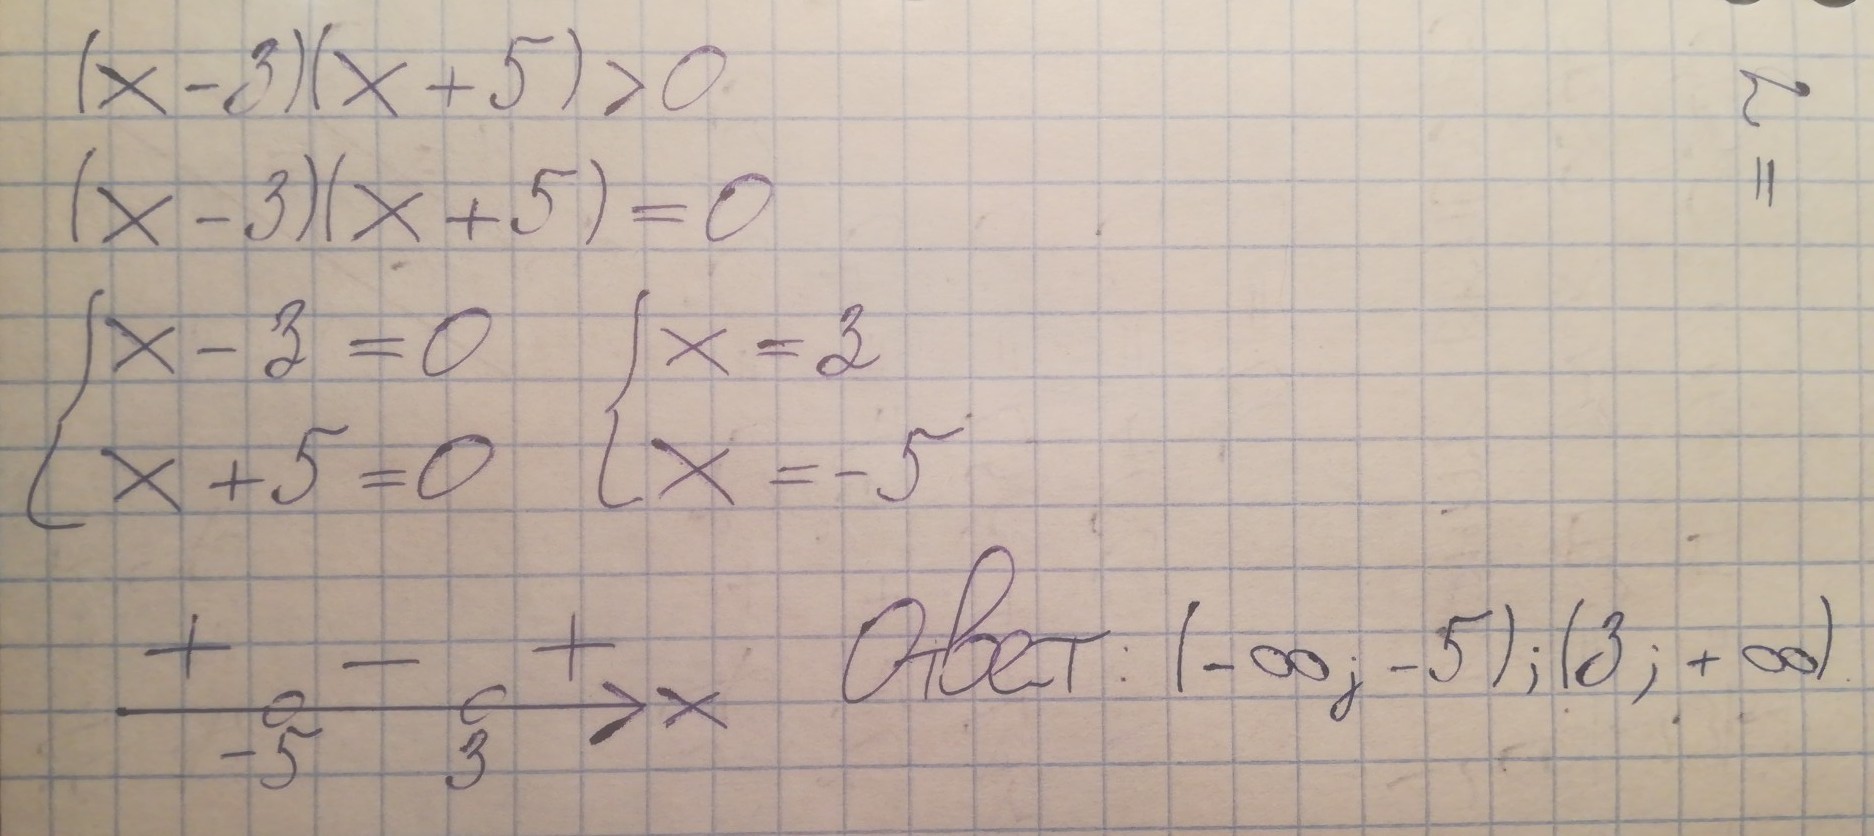 (x - 3)(x + 5) > 0
(x - 3)(x + 5) = 0
{ x - 3 = 0 { x = 3
x + 5 = 0 x = -5
+ - +
x
-5 3
Ответ: (-∞; -5); (3; +∞)
2 =